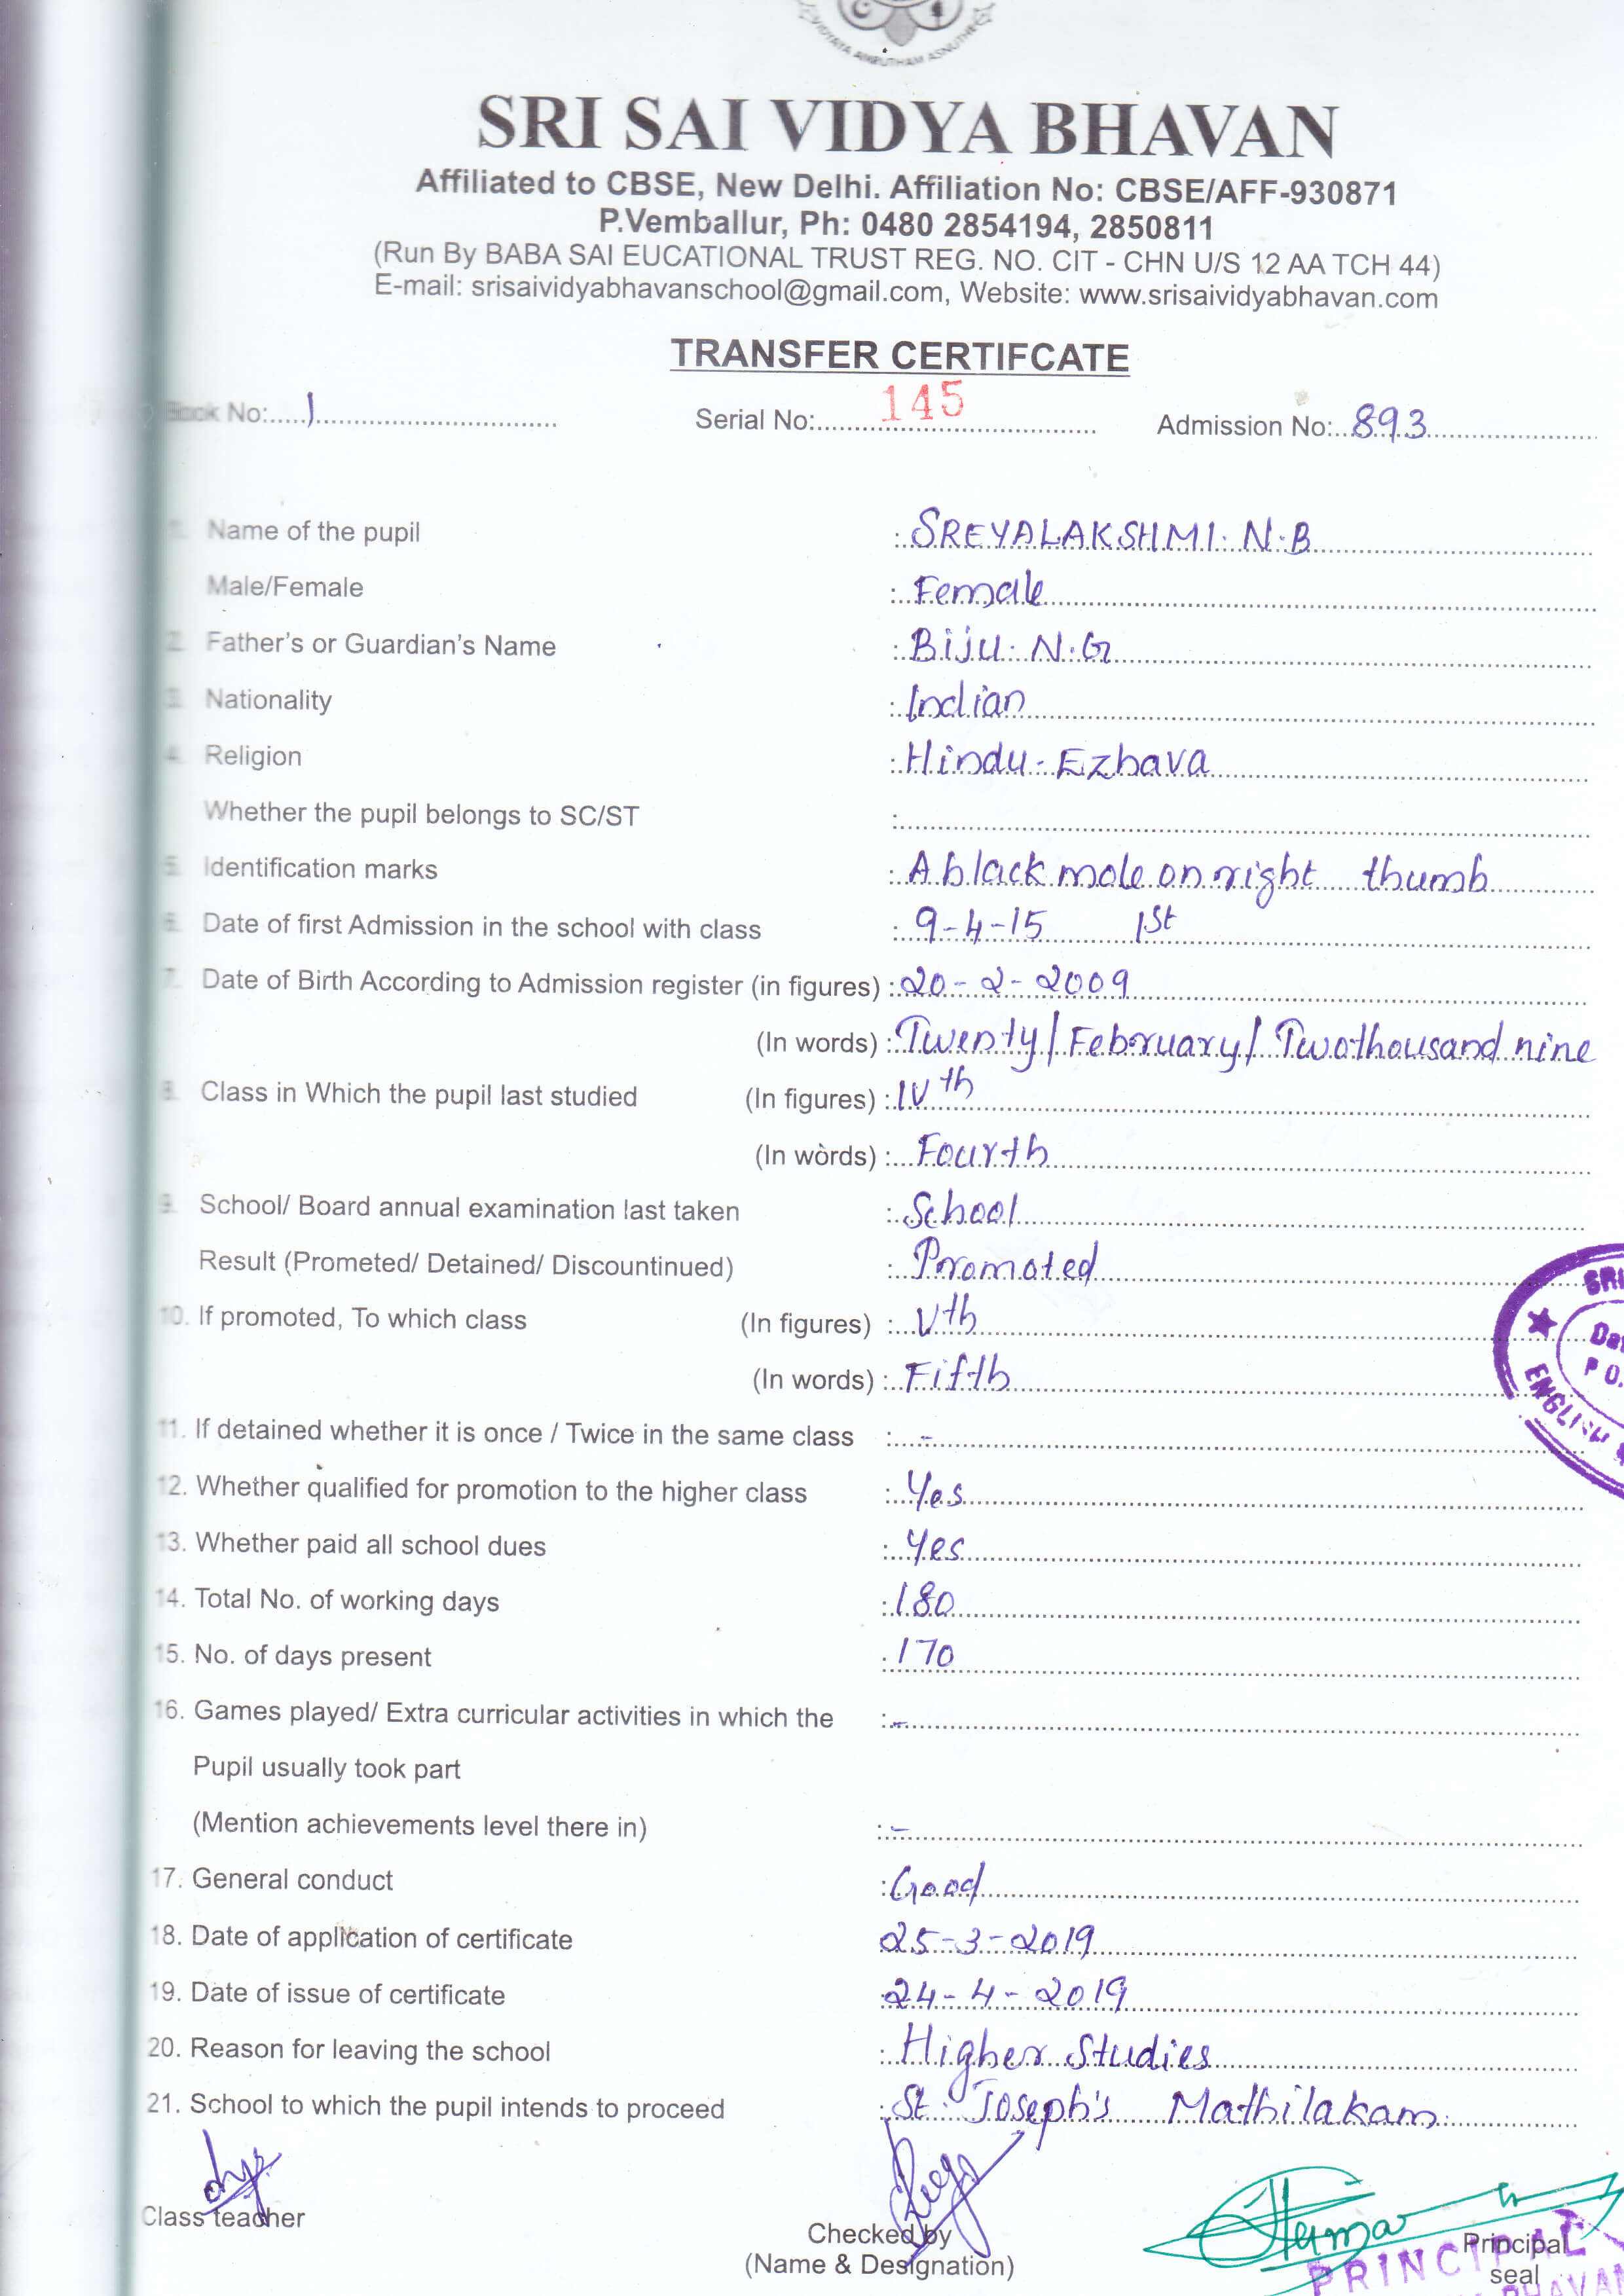 VIDYAYA AMRUTHAM ASNUTHE
SRI SAI VIDYA BHAVAN
Affiliated to CBSE, New Delhi. Affiliation No: CBSE/AFF-930871
P.Vemballur, Ph: 0480 2854194, 2850811
(Run By BABA SAI EUCATIONAL TRUST REG. NO. CIT - CHN U/S 12 AA TCH 44)
E-mail: srisaividyabhavanschool@gmail.com, Website: www.srisaividyabhavan.com
TRANSFER CERTIFCATE
Book No: 1 Serial No: 145 Admission No: 893
1. Name of the pupil : SREYALAKSHMI. N.B
Male/Female : Female
2. Father's or Guardian's Name : Biju. N.G
3. Nationality : Indian
4. Religion : Hindu - Ezhava
Whether the pupil belongs to SC/ST :
5. Identification marks : A black mole on right thumb
6. Date of first Admission in the school with class : 9-4-15 1st
7. Date of Birth According to Admission register (in figures) : 20-2-2009
(In words) : Twenty/February/Twothousand nine
8. Class in Which the pupil last studied (In figures) : IVth
(In words) : Fourth
9. School/ Board annual examination last taken : School
Result (Prometed/ Detained/ Discountinued) : Promoted
10. If promoted, To which class (In figures) : Vth
(In words) : Fifth
11. If detained whether it is once / Twice in the same class : -
12. Whether qualified for promotion to the higher class : Yes
13. Whether paid all school dues : Yes
14. Total No. of working days : 180
15. No. of days present : 170
16. Games played/ Extra curricular activities in which the : -
Pupil usually took part
(Mention achievements level there in) : -
17. General conduct : Good
18. Date of application of certificate 25-3-2019
19. Date of issue of certificate : 24-4-2019
20. Reason for leaving the school : Higher Studies
21. School to which the pupil intends to proceed : St. Joseph's Mathilakam
SRI
P O.
ENGLISH
Class teacher
Checked by
(Name & Designation)
Principal
seal
PRINCIPAL
BHAVAN